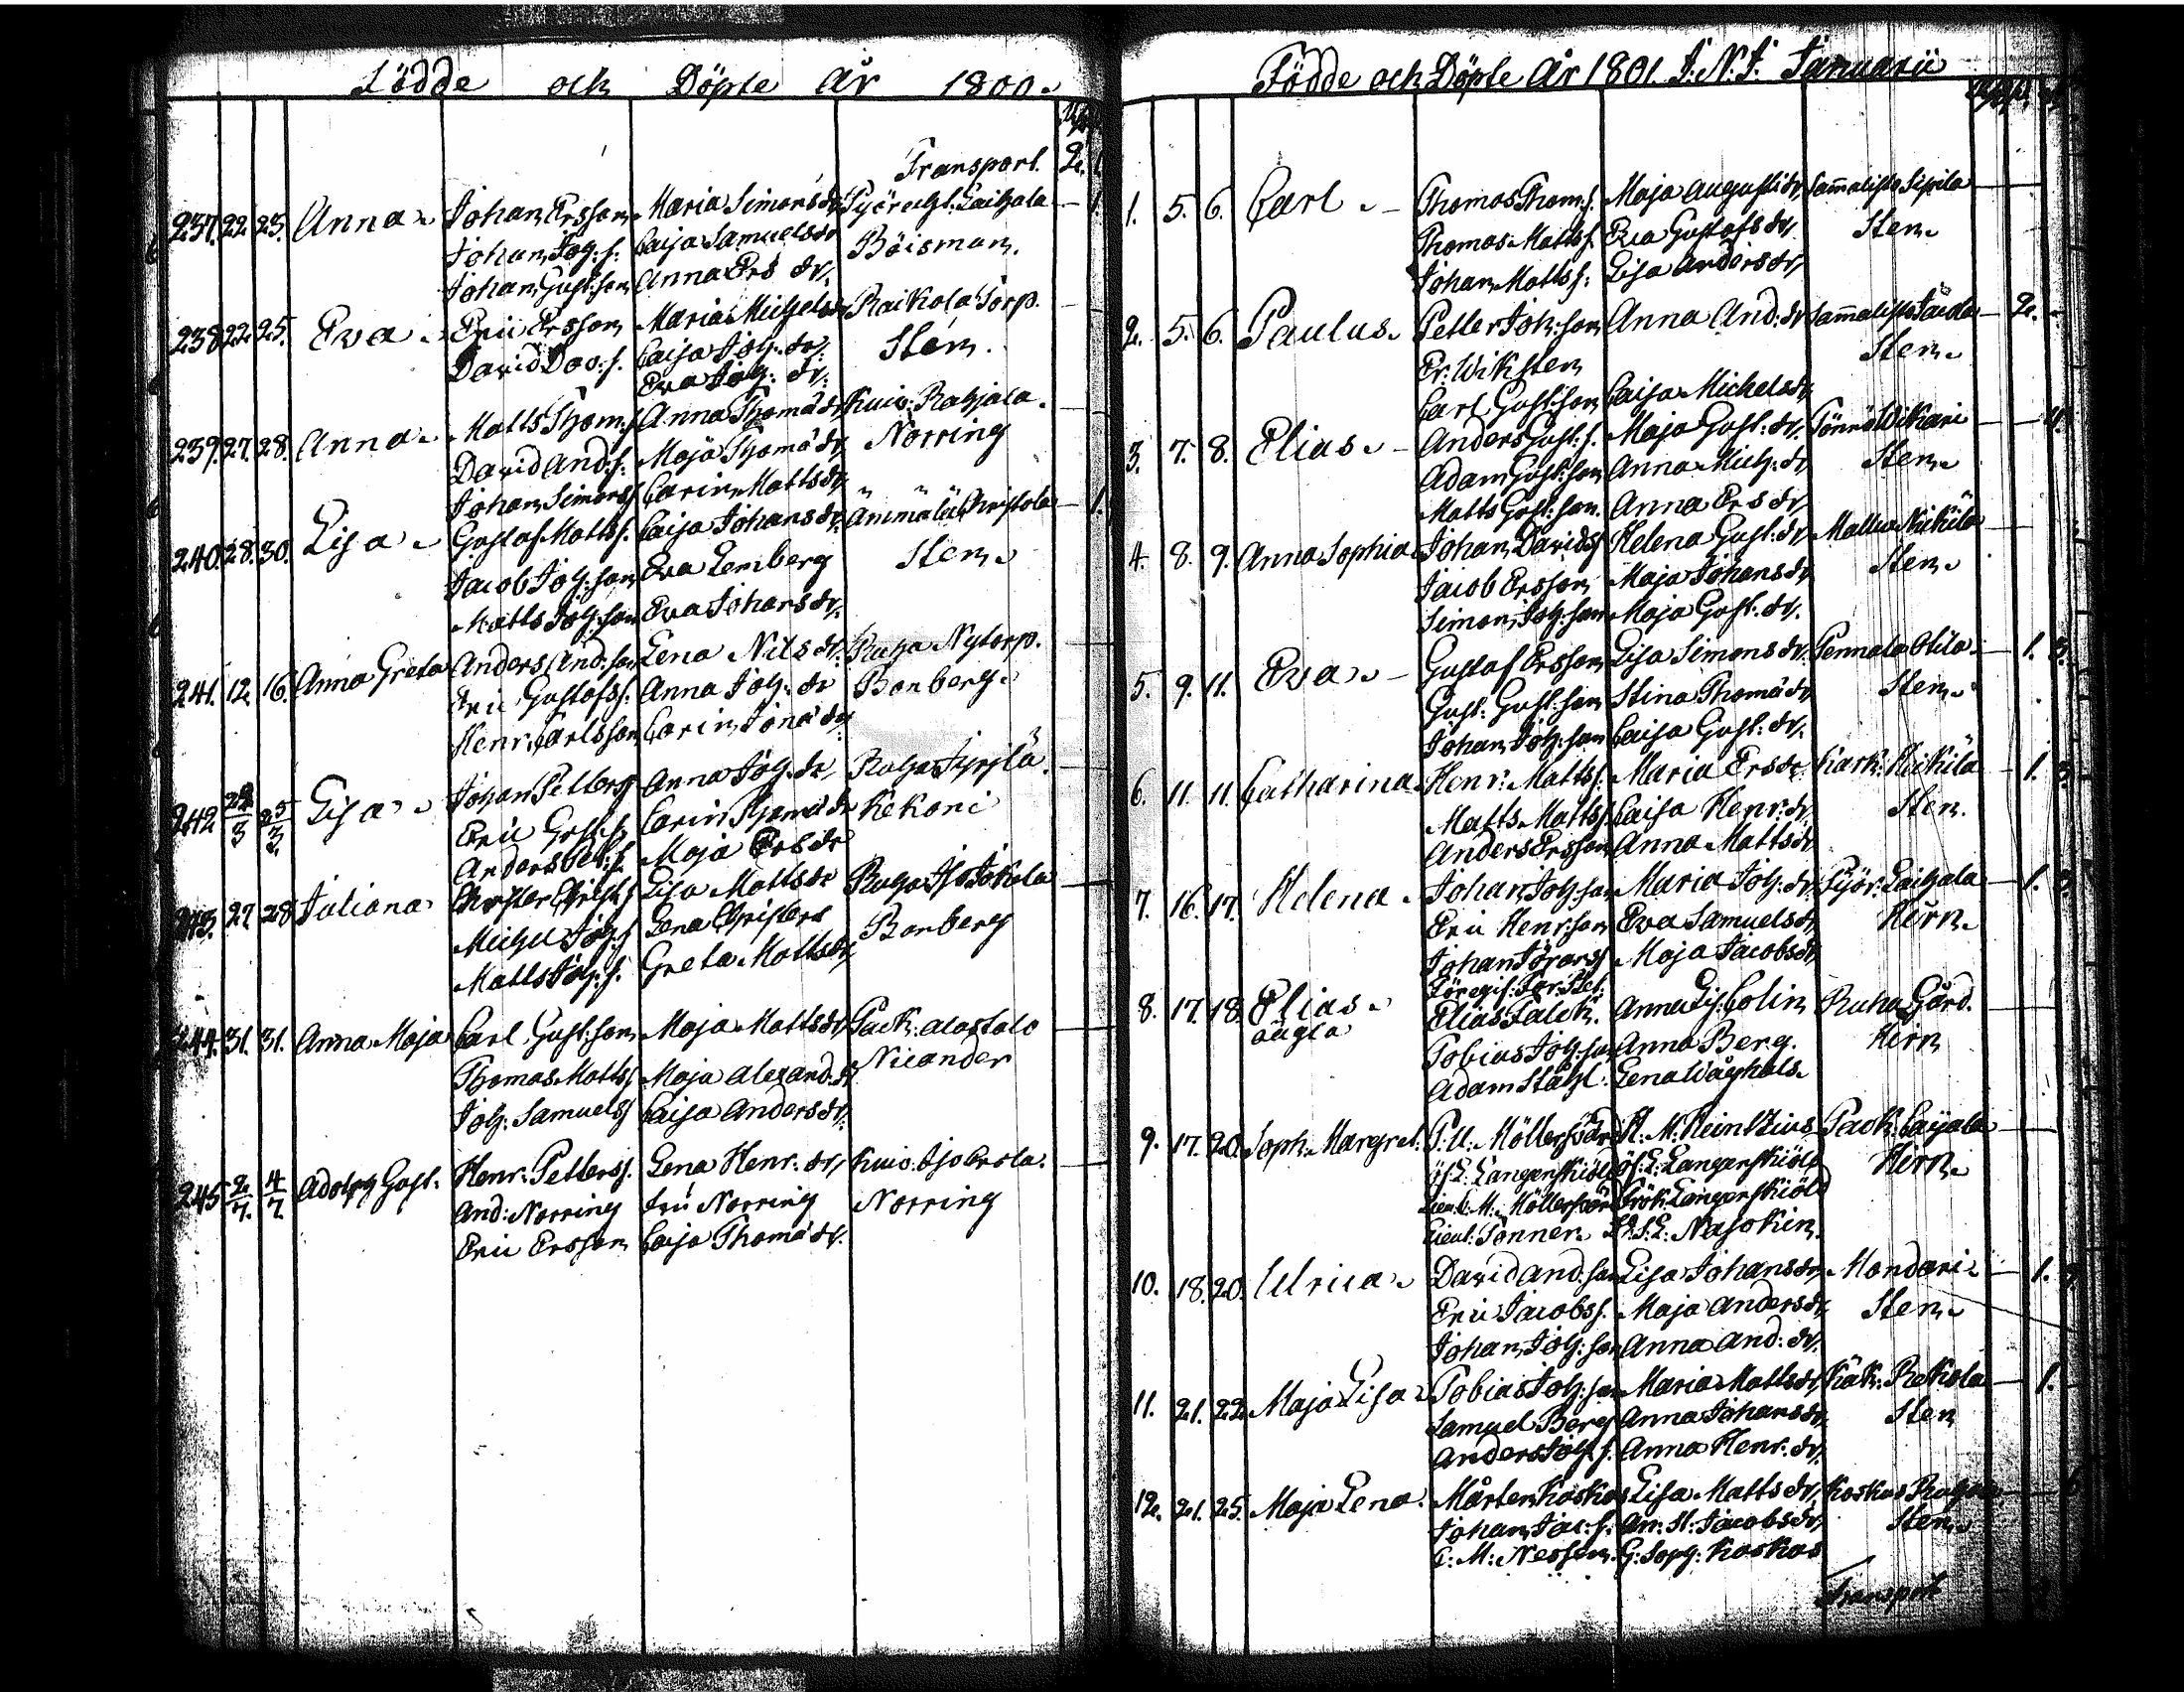 Födde och Döpte År 1800.
Transport. 2.
237. 22. 23. Anna Johan Ersson Maria Simonsdr Laihala 1.
Johan Joh: s. Caisa Samuelsdr Böisman.
Johan Gust: son Anna Ers dr.
238 22. 25. Eva Eric Ersson Maria Michelsdr Raikola Torp.
David Dav: s. Caisa Joh: dr. Sten.
Eva Joh: dr.
239. 27. 28. Anna Matts Thom: s. Anna Thomædr
David And: s. Maja Thomædr Norring
Johan Simonss Carin Mattsdr
240. 28. 30. Lisa Gustaf Matts s. Caisa Johansdr 1.
Jacob Joh: son Eva Lemberg Sten
Matts Joh: son Eva Johansdr.
241. 12. 16. Anna Greta Anders And: son Lena Nils dr. Nytorp.
Eric Gustafss. Anna Joh: dr Bonberg
Henr. Carlsson Carin Jonædr
242 24/3 25/3 Lisa Johan Petters Anna Joh: dr
Eric Gust: s Carin Thomædr Kekoni
Anders Pett: s. Maja Ersdr
243. 27. 28 Juliana Christer Lisa Mattsdr
Michel Joh: s Lena Bonberg
Matts Joh: s. Greta Mattsdr
244. 31. 31. Anna Maja Carl Gust: son Maja Mattsdr Alastalo
Thomas Matts s Maja Alexand: dr Nicander
Joh: Samuels s Caisa Andersdr.
245 2/7. 4/7 Adolph Gust. Henr: Petterss. Lena Henr: dr.
And: Norring Norring Norring
Eric Ersson Caisa Thomædr.
Födde och Döpte År 1801. J. N. J. Januarii
1. 5. 6. Carl Thomas Thom: s. Maja Augustidr. Sam̄alisto Sipila
Thomas Matts s. Eva Gustafsdr Sten
Johan Matts s: Lisa Andersdr
2. 5. 6. Paulus Petter Joh: son Anna And: dr 2.
Er: Wiksten Sten
Carl Gust: son Caisa Michelsdr
3. 7. 8. Elias Anders Gust: s. Maja Gust: dr. Wikari
Adam Gust: son Anna Mich: dr Sten
Matts Gust: son. Anna Ersdr
4. 8. 9. Anna Sophia Johan Davids s Helena Gust: dr
Jacob Ersson Maja Johansdr Sten
Simon Joh: son Maja Gust: dr.
5. 9. 11. Eva Gustaf Ersson Lisa Simonsdr. Pennala Otila 1.
Gust: Gust: son Stina Thomædr Sten
Johan Joh: son Caisa Gust: dr.
6. 11. 11. Catharina Henr: Matts s. Maria Ersdr 1.
Matts Matts s Caisa Henr: dr. Sten.
Anders Ersson Anna Mattsdr
7. 16. 17. Helena Johan Joh: son Maria Joh: dr. Laihala 1.
Eric Henr: son Eva Samuelsdr Hirn
Johan Maja Jacobsdr
8. 17. 18. Elias Elias Falck. Anna Lis: Colin Ruha Gård.
oägta Tobias Joh: son Anna Berg. Hirn
Adam Ståhl. Lena Wåghals
9. 17. 20. Soph: Margret. P: U: Möllersvärd H: M: Heintzius
Langenskiöld Langenskiöld Hirn
Lieut: M: Möllersvärd Frök: Langenskiöld
Lieut: Tanner Nasokin.
10. 18. 20. Ulrica David And: son Lisa Johansdr Mondari 1.
Eric Jacobss. Maja Andersdr. Sten
Johan Joh: son Anna And: dr.
11. 21. 22. Maja Lisa Tobias Joh: son Maria Mattsdr 1.
Samuel Berg Anna Johansdr Sten
Anders Joh: s. Anna Henr: dr.
12. 21. 25. Maja Lena Mårten Koskos Lisa Mattsdr. Koskos
Johan Jac: s. Jacobsdr. Sten
C: M: G: Soph: Koskos
Transport